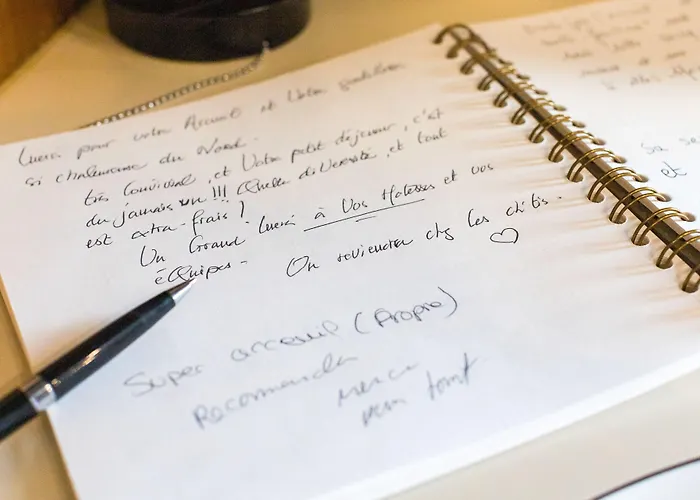 Merci pour votre Accueil et Votre gentillesse
si chaleureuse du Nord.
très Convivial, et Votre petit déjeuner, c'est
du jamais vu !!! Quelle diversité, et tout
est extra-frais !
Un Grand Merci à Vos Hotesses et vos
éQuipes -
On reviendra chez les ch'tis.
Super acceuil (Propre)
Recommenda
Merci
pour tout
Sa se
et